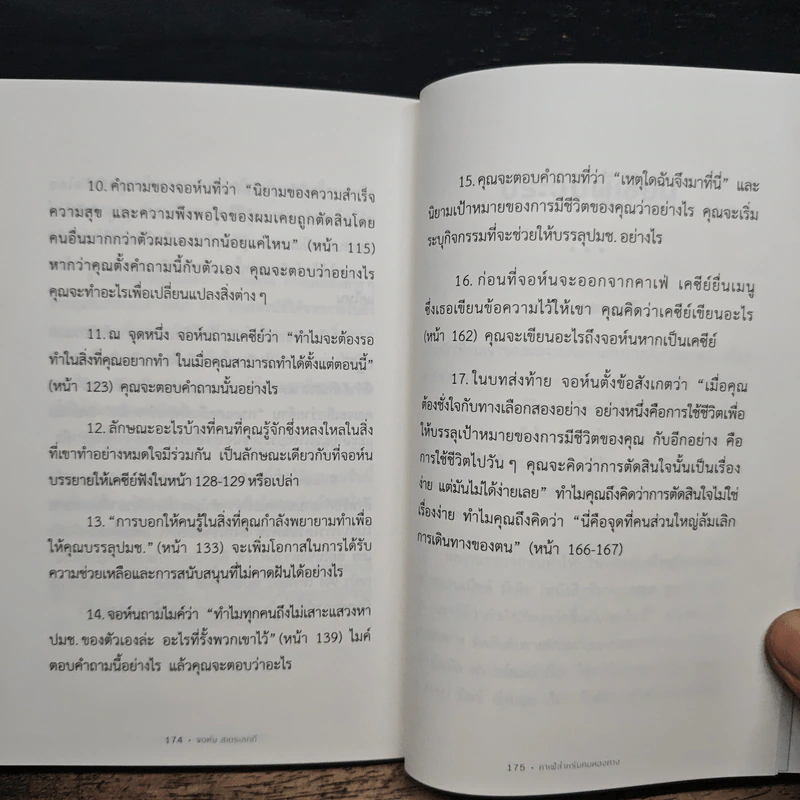 10. คำถามของจอห์นที่ว่า “นิยามของความสำเร็จ
ความสุข และความพึงพอใจของผมเคยถูกตัดสินโดย
คนอื่นมากกว่าตัวผมเองมากน้อยแค่ไหน” (หน้า 115)
หากว่าคุณตั้งคำถามนี้กับตัวเอง คุณจะตอบว่าอย่างไร
คุณจะทำอะไรเพื่อเปลี่ยนแปลงสิ่งต่าง ๆ
11. ณ จุดหนึ่ง จอห์นถามเคซีย์ว่า “ทำไมจะต้องรอ
ทำในสิ่งที่คุณอยากทำ ในเมื่อคุณสามารถทำได้ตั้งแต่ตอนนี้”
(หน้า 123) คุณจะตอบคำถามนั้นอย่างไร
12. ลักษณะอะไรบ้างที่คนที่คุณรู้จักซึ่งหลงใหลในสิ่ง
ที่เขาทำอย่างหมดใจมีร่วมกัน เป็นลักษณะเดียวกับที่จอห์น
บรรยายให้เคซีย์ฟังในหน้า 128-129 หรือเปล่า
13. “การบอกให้คนรู้ในสิ่งที่คุณกำลังพยายามทำเพื่อ
ให้คุณบรรลุปมช.” (หน้า 133) จะเพิ่มโอกาสในการได้รับ
ความช่วยเหลือและการสนับสนุนที่ไม่คาดฝันได้อย่างไร
14. จอห์นถามไมค์ว่า “ทำไมทุกคนถึงไม่เสาะแสวงหา
ปมช. ของตัวเองล่ะ อะไรที่รั้งพวกเขาไว้” (หน้า 139) ไมค์
ตอบคำถามนี้อย่างไร แล้วคุณจะตอบว่าอะไร
174 • จอห์น สเตรเลกกี้
15. คุณจะตอบคำถามที่ว่า “เหตุใดฉันจึงมาที่นี่” และ
นิยามเป้าหมายของการมีชีวิตของคุณว่าอย่างไร คุณจะเริ่ม
ระบุกิจกรรมที่จะช่วยให้บรรลุปมช. อย่างไร
16. ก่อนที่จอห์นจะออกจากคาเฟ่ เคซีย์ยื่นเมนู
ซึ่งเธอเขียนข้อความไว้ให้เขา คุณคิดว่าเคซีย์เขียนอะไร
(หน้า 162) คุณจะเขียนอะไรถึงจอห์นหากเป็นเคซีย์
17. ในบทส่งท้าย จอห์นตั้งข้อสังเกตว่า “เมื่อคุณ
ต้องชั่งใจกับทางเลือกสองอย่าง อย่างหนึ่งคือการใช้ชีวิตเพื่อ
ให้บรรลุเป้าหมายของการมีชีวิตของคุณ กับอีกอย่าง คือ
การใช้ชีวิตไปวัน ๆ คุณจะคิดว่าการตัดสินใจนั้นเป็นเรื่อง
ง่าย แต่มันไม่ได้ง่ายเลย” ทำไมคุณถึงคิดว่าการตัดสินใจไม่ใช่
เรื่องง่าย ทำไมคุณถึงคิดว่า “นี่คือจุดที่คนส่วนใหญ่ล้มเลิก
การเดินทางของตน” (หน้า 166-167)
175 • คาเฟ่สำหรับคนหลงทาง